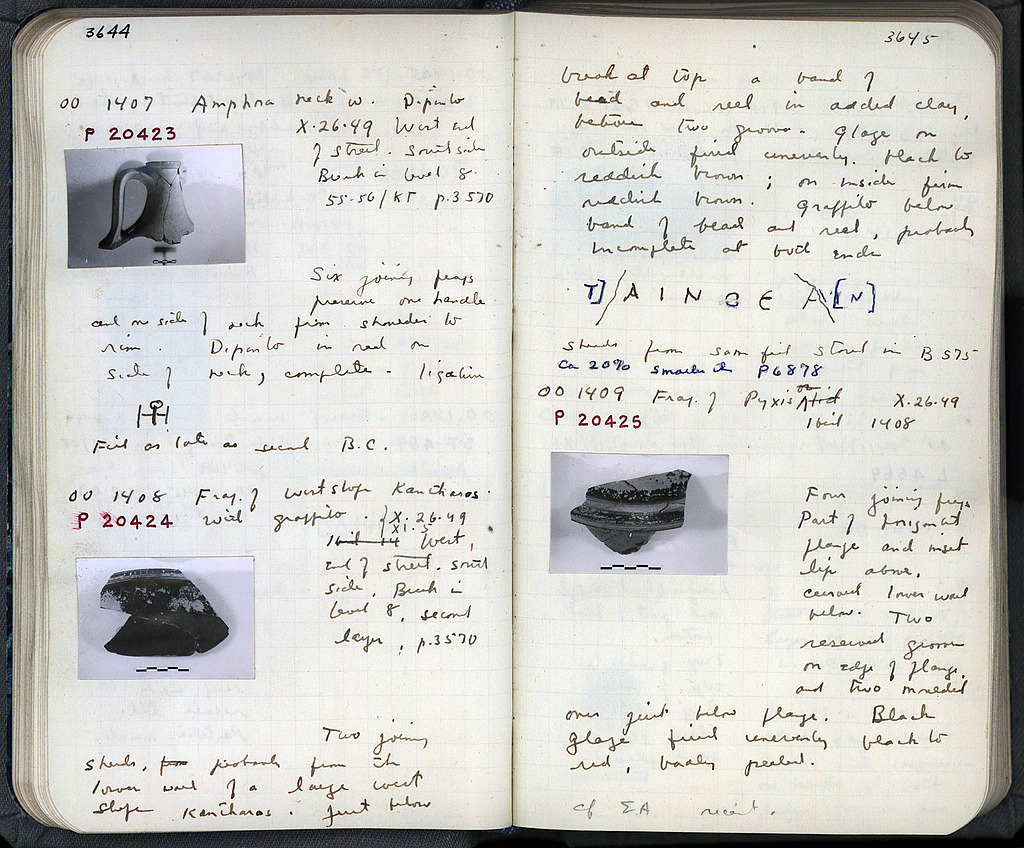 3644
OO 1407 Amphora neck w. Dipinto
P 20423
X·26·49 West end
of street. South side
Break in level 8.
55-56/KT p.3570
Six joining frags
preserve one handle
and one side of neck from shoulder to
rim. Dipinto in red on
side of neck, complete - ligature
Fill as late as second B.C.
OO 1408 Frag. of West slope Kantharos.
P 20424 with graffito. X·26·49
XI·5
Ibid 14 West
end of street. South
side. Break in
level 8, second
layer, p.3570
Two joining
sherds, from probably from the
lower wall of a large west
slope Kantharos. Just below
3645
break at top a band of
bead and reel in added clay,
between two grooves. Glaze on
outside fired unevenly. black to
reddish brown; on inside firm
reddish brown. Graffito below
band of bead and reel, probably
incomplete at both ends
T] A I N Ͽ Є A [IN]
sherds from same fill stored in B 575
Ca 20% smaller than P6878
OO 1409 Frag. of Pyxis or X·26·49
P 20425
Ibid 1408
Four joining frags
Part of horizontal
flange and inset
lip above,
carinated lower wall
below. Two
reserved grooves
on edge of flange,
and two moulded
ones just below flange. Black
glaze fired unevenly black to
red, badly peeled.
cf ΣA recut.